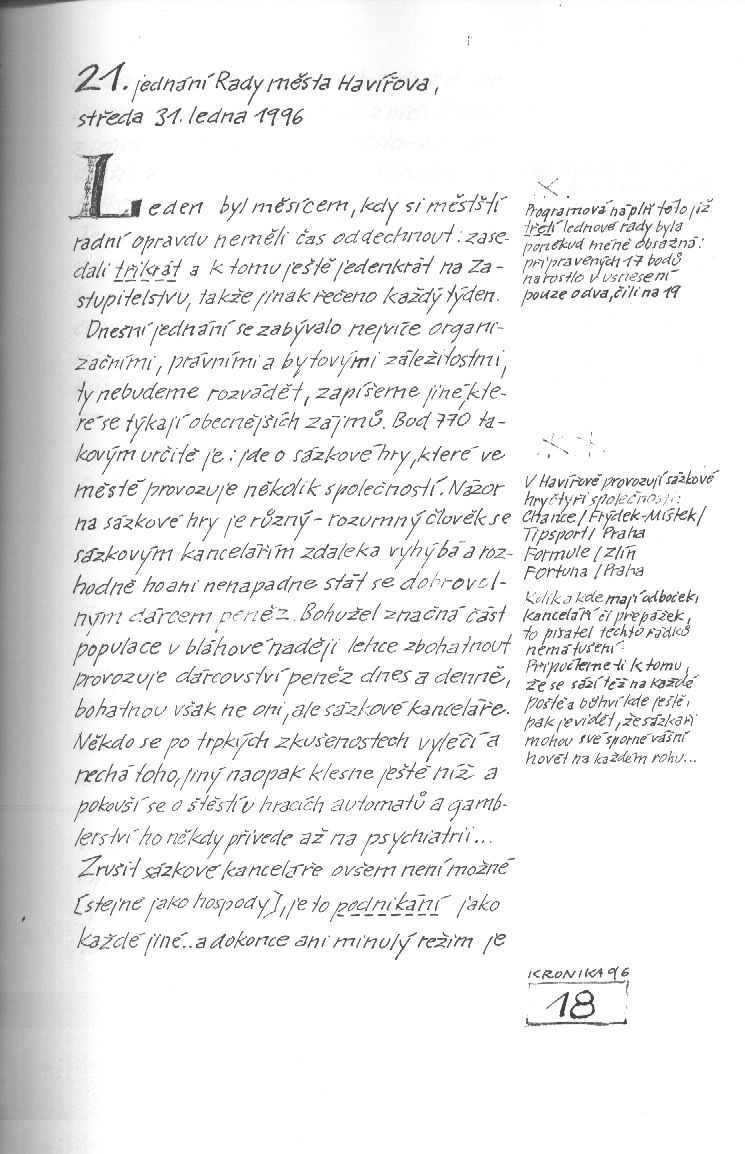 21. jednání Rady města Havířova,
středa 31. ledna 1996
Leden byl měsícem, kdy si městští
radní opravdu neměli čas oddechnout: zase-
dali třikrát a k tomu ještě jedenkrát na Za-
stupitelstvu, takže jinak řečeno každý týden.
Dnešní jednání se zabývalo nejvíce organi-
začními, právními a bytovými záležitostmi,
ty nebudeme rozvádět, zapíšeme jiné, kte-
ré se týkají obecnějších zájmů. Bod 770 ta-
kovým určitě je: jde o sázkové hry, které ve
městě provozuje několik společností. Názor
na sázkové hry je různý - rozumný člověk se
sázkovým kancelářím zdaleka vyhýbá a roz-
hodně ho ani nenapadne stát se dobrovol-
ným dárcem peněz. Bohužel značná část
populace v bláhové naději lehce zbohatnout
provozuje dárcovství peněz dnes a denně,
bohatnou však ne oni, ale sázkové kanceláře.
Někdo se po trpkých zkušenostech vyléčí a
nechá toho, jiný naopak klesne ještě níž a
pokouší se o štěstí u hracích automatů a gamb-
lerství ho někdy přivede až na psychiatrii...
Zrušit sázkové kanceláře ovšem není možné
[stejně jako hospody], je to podnikání jako
každé jiné.. a dokonce ani minulý režim je
Programová náplň této již
třetí lednové rady byla
poněkud méně obsažná:
připravených 17 bodů
narostlo v usnesení
pouze o dva, čili na 19
V Havířově provozují sázkové
hry čtyři společnosti:
Chance /Frýdek-Místek/
Tipsport / Praha
Formule / Zlín
Fortuna / Praha
Kolik a kde mají odboček,
kanceláří či přepážek,
to pisatel těchto řádků
nemá tušení.
Připočteme-li k tomu,
že se sází též na každé
poště a bůhví kde ještě,
pak je vidět, že sázkaři
mohou své sporné vášni
hovět na každém rohu...
KRONIKA 96
18